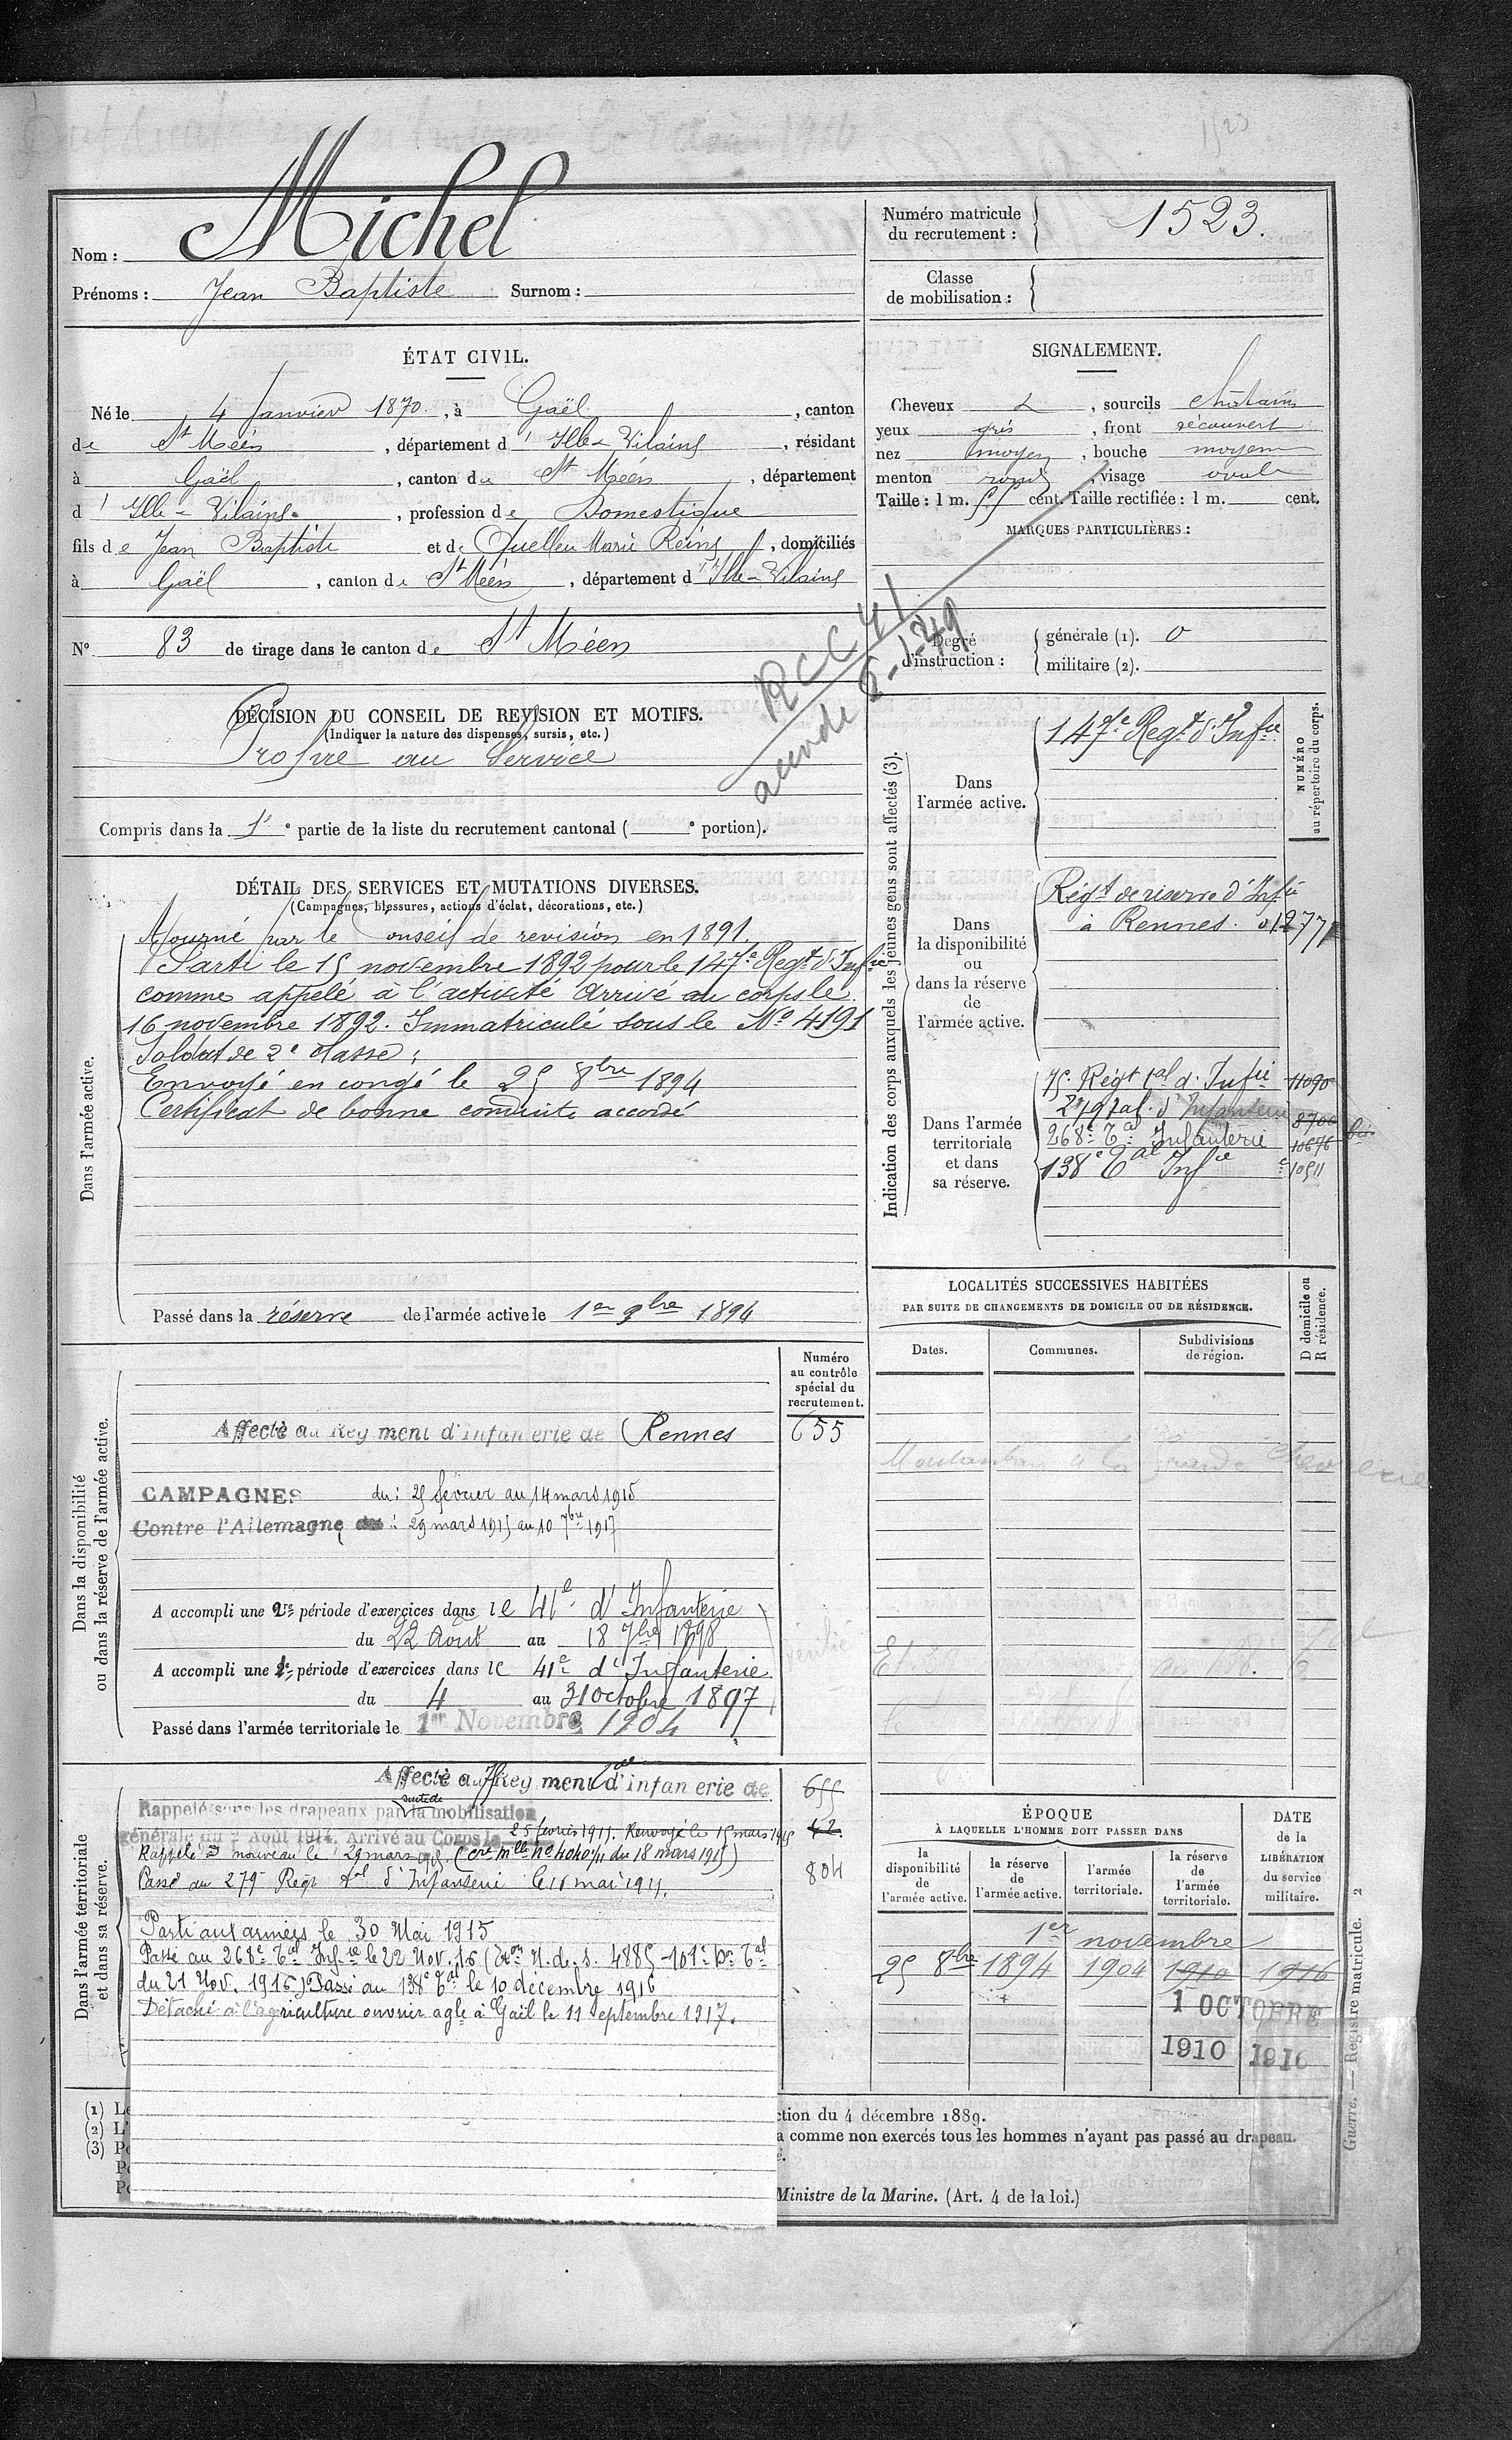 1523
Nom : Michel
Prénoms : Jean Baptiste Surnom :
Numéro matricule du recrutement : 1523.
Classe de mobilisation :
ÉTAT CIVIL.
Né le 4 Janvier 1870, à Gaël, canton
de St Méen, département d'Ille-Vilaine, résidant
à Gaël, canton de St Méen, département
d'Ille-Vilaine, profession de Domestique
fils de Jean Baptiste et de Marie Reine, domiciliés
à Gaël, canton de St Méen, département d'Ille-Vilaine
SIGNALEMENT.
Cheveux, sourcils châtains
yeux gris, front découvert
nez moyen, bouche moyenne
menton rond, visage ovale
Taille : 1 m. 55 cent. Taille rectifiée : 1 m. cent.
MARQUES PARTICULIÈRES :
N° 83 de tirage dans le canton de St Méen
Degré d'instruction : générale (1). 0
militaire (2).
RCC 41
DÉCISION DU CONSEIL DE REVISION ET MOTIFS.
(Indiquer la nature des dispenses, sursis, etc.)
Propre au Service
Compris dans la 1e partie de la liste du recrutement cantonal ( e portion).
DÉTAIL DES SERVICES ET MUTATIONS DIVERSES.
(Campagnes, blessures, actions d'éclat, décorations, etc.)
Dans l'armée active.
Ajourné par le Conseil de revision en 1891.
Parti le 15 novembre 1892 pour le 147e Regt d'Infie
comme appelé à l'activité Arrivé au corps le
16 novembre 1892. Immatriculé sous le No 4191
Soldat de 2e classe ;
Envoyé en congé le 25 8bre 1894
Certificat de bonne conduite accordé
Passé dans la réserve de l'armée active le 1er 9bre 1894
Indication des corps auxquels les jeunes gens sont affectés (3).
NUMÉRO au répertoire du corps.
Dans l'armée active.
147e Regt d'Infie
Dans la disponibilité ou dans la réserve de l'armée active.
Régt de réserve d'Infie
à Rennes. 01277
Dans l'armée territoriale et dans sa réserve.
75e Régt tal d'Infie 11090
279 tal d'Infanterie 8700 bis
268e Tal Infanterie 10676
138e Tal Infie 10511
LOCALITÉS SUCCESSIVES HABITÉES
PAR SUITE DE CHANGEMENTS DE DOMICILE OU DE RÉSIDENCE.
Dates. Communes. Subdivisions de région. D domicile ou R résidence.
Dans la disponibilité ou dans la réserve de l'armée active.
Numéro au contrôle spécial du recrutement.
Affecté au Régiment d'infanterie de Rennes 655
CAMPAGNES du : 25 février au 14 mars 1915
Contre l'Allemagne du : 29 mars 1915 au 10 7bre 1917
A accompli une 2e période d'exercices dans le 41e d'Infanterie
du 22 Août au 18 7bre 1898
A accompli une 1e période d'exercices dans le 41e d'Infanterie
du 4 au 31 octobre 1897
Passé dans l'armée territoriale le 1er Novembre 1904
Dans l'armée territoriale et dans sa réserve.
Affecté au Régiment d'infanterie de 655
Rappelé sous les drapeaux par suite de la mobilisation
générale du 2 Août 1914. Arrivé au Corps le 25 février 1915. Renvoyé le 15 mars 1915 42.
Rappelé à nouveau le 29 mars 1915. (cre mlle no 4040 1/11 du 18 mars 1915) 804
Passé au 279e Régt tal d'Infanterie le 15 mai 1915.
Parti aux armées le 30 Mai 1915
Passé au 268e Tal Infie le 22 Nov. 16 (Don N. de S. 4885 - 101e Don Tal
du 21 Nov. 1916) Passé au 138e Tal le 10 décembre 1916
Détaché à l'agriculture ouvrier agle à Gaël le 11 septembre 1917.
ÉPOQUE À LAQUELLE L'HOMME DOIT PASSER DANS
la disponibilité de l'armée active. la réserve de l'armée active. l'armée territoriale. la réserve de l'armée territoriale.
DATE de la LIBÉRATION du service militaire.
1er novembre
25 8bre 1894 1904 1910 1916
1 OCTOBRE
1910 1916
(1) Le
(2) L'
(3) Po
Po
Po
ction du 4 décembre 1889.
a comme non exercés tous les hommes n'ayant pas passé au drapeau.
é.
Ministre de la Marine. (Art. 4 de la loi.)
Guerre. — Registre matricule. 2